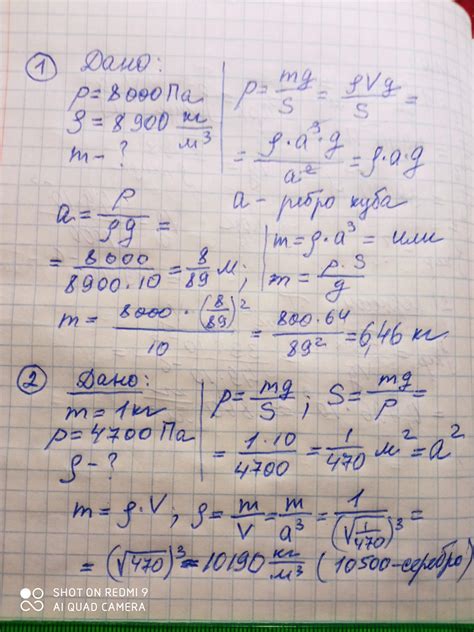 ① Дано:
p = 8000 Па
ρ = 8900 кг/м³
m - ?
p = mg/S = ρVg/S =
= ρ·a³·g/a² = ρ·a·g
a - ребро куба
a = p/ρg =
= 8000/8900·10 = 8/89 м;
m = ρ·a³ = или
m = p·S/g
m = 8000·(8/89)²/10 = 800·64/89² = 6,46 кг.
② Дано:
m = 1 кг
p = 4700 Па
ρ - ?
p = mg/S ; S = mg/p =
= 1·10/4700 = 1/470 м² = a²
m = ρ·V ; ρ = m/V = m/a³ = 1/(√1/470)³ =
= (√470)³ = 10190 кг/м³ (10500 - серебро)
SHOT ON REDMI 9
AI QUAD CAMERA